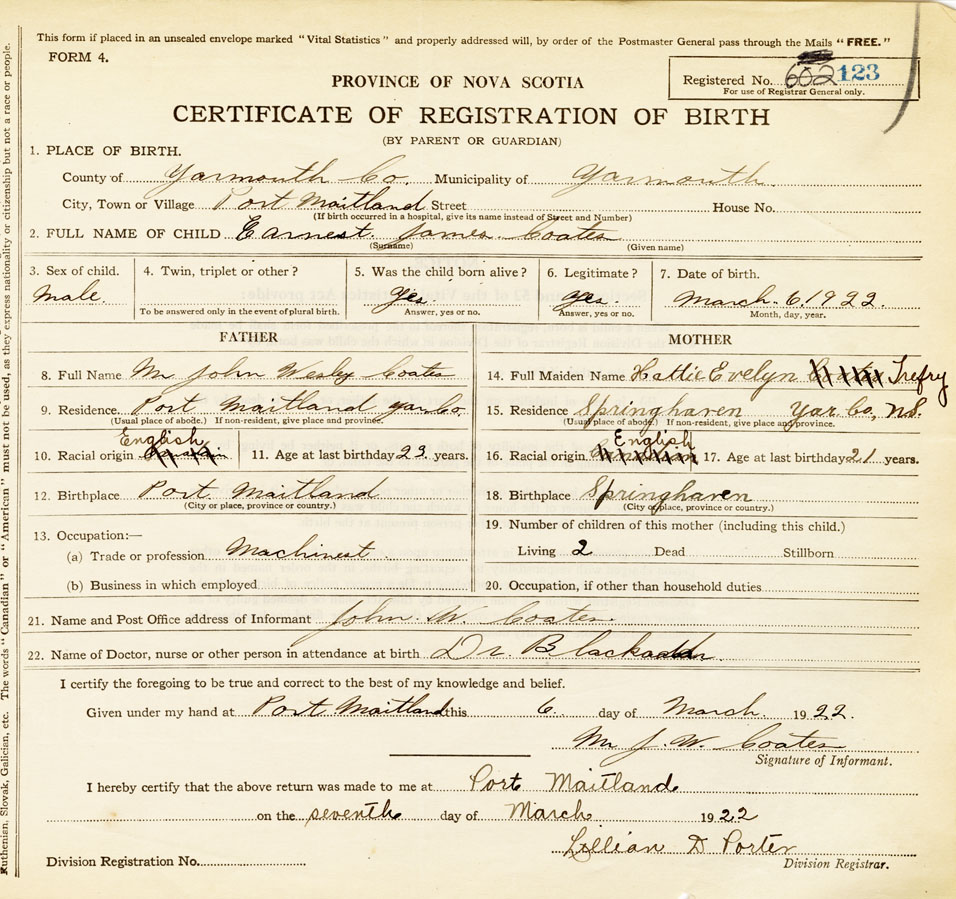 This form if placed in an unsealed envelope marked "Vital Statistics" and properly addressed will, by order of the Postmaster General pass through the Mails "FREE."
FORM 4.
Registered No. 602 123
For use of Registrar General only.
PROVINCE OF NOVA SCOTIA
CERTIFICATE OF REGISTRATION OF BIRTH
(BY PARENT OR GUARDIAN)
1. PLACE OF BIRTH.
County of Yarmouth Co. Municipality of Yarmouth
City, Town or Village Port Maitland Street House No.
(If birth occurred in a hospital, give its name instead of Street and Number)
2. FULL NAME OF CHILD Earnest James Coates
(Surname) (Given name)
3. Sex of child. 4. Twin, triplet or other? 5. Was the child born alive? 6. Legitimate? 7. Date of birth.
Male. Yes. Yes. March. 6. 1922.
To be answered only in the event of plural birth. Answer, yes or no. Answer, yes or no. Month, day, year.
FATHER
8. Full Name Mr John Wesley Coates
9. Residence Port Maitland Yar Co.
(Usual place of abode.) If non-resident, give place and province.
English
10. Racial origin 11. Age at last birthday 23 years.
12. Birthplace Port Maitland
(City or place, province or country.)
13. Occupation:—
(a) Trade or profession Machinest
(b) Business in which employed
MOTHER
14. Full Maiden Name Hattie Evelyn Trefry
15. Residence Springhaven Yar Co, N.S.
(Usual place of abode.) If non-resident, give place and province.
English
16. Racial origin 17. Age at last birthday 21 years.
18. Birthplace Springhaven
(City or place, province or country.)
19. Number of children of this mother (including this child.)
Living 2 Dead Stillborn
20. Occupation, if other than household duties
21. Name and Post Office address of Informant John. W. Coates.
22. Name of Doctor, nurse or other person in attendance at birth Dr. Blackadar
I certify the foregoing to be true and correct to the best of my knowledge and belief.
Given under my hand at Port Maitland this 6. day of March. 1922.
Mr J. W. Coates
Signature of Informant.
I hereby certify that the above return was made to me at Port Maitland
on the seventh day of March 1922
Lillian D Porter
Division Registrar.
Division Registration No.
Ruthenian, Slovak, Galician, etc. The words "Canadian" or "American" must not be used, as they express nationality or citizenship but not a race or people.